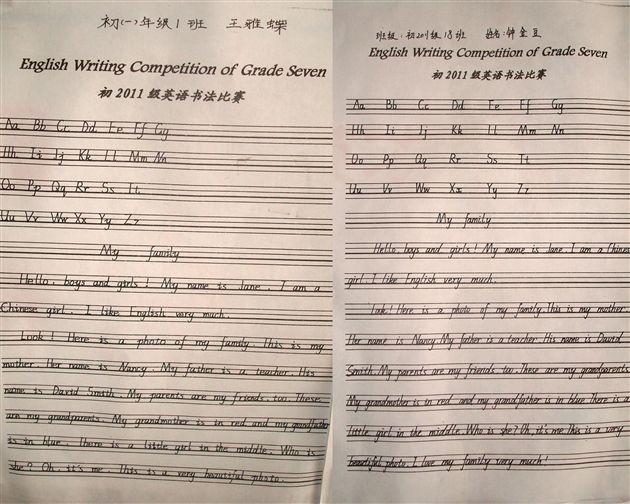 初(一)年级1班 王雅蝶
English Writing Competition of Grade Seven
初 2011 级英语书法比赛
Aa Bb Cc Dd Ee Ff Gg
Hh Ii Jj Kk Ll Mm Nn
Oo Pp Qq Rr Ss Tt
Uu Vv Ww Xx Yy Zz
My family
Hello, boys and girls! My name is Jane. I am a
Chinese girl. I like English very much.
Look! Here is a photo of my family. This is my
mother. Her name is Nancy. My father is a teacher. His
name is David Smith. My parents are my friends, too. These
are my grandparents. My grandmother is in red and my grandfather
is in blue. There is a little girl in the middle. Who is
she? Oh, it's me. This is a very beautiful photo.
班级:初2011级18班 姓名:钟金豆
English Writing Competition of Grade Seven
初 2011 级英语书法比赛
Aa Bb Cc Dd Ee Ff Gg
Hh Ii Jj Kk Ll Mm Nn
Oo Pp Qq Rr Ss Tt
Uu Vv Ww Xx Yy Zz
My family
Hello, boys and girls! My name is Jane. I am a Chines
girl. I like English very much.
Look! Here is a photo of my family. This is my mother.
Her name is Nancy. My father is a teacher. His name is David
Smith. My parents are my friends too. These are my grandparents
My grandmother is in red and my grandfather is in blue. There is a
little girl in the middle. Who is she? Oh, it's me. This is a very
beautiful photo. I love my family very much!